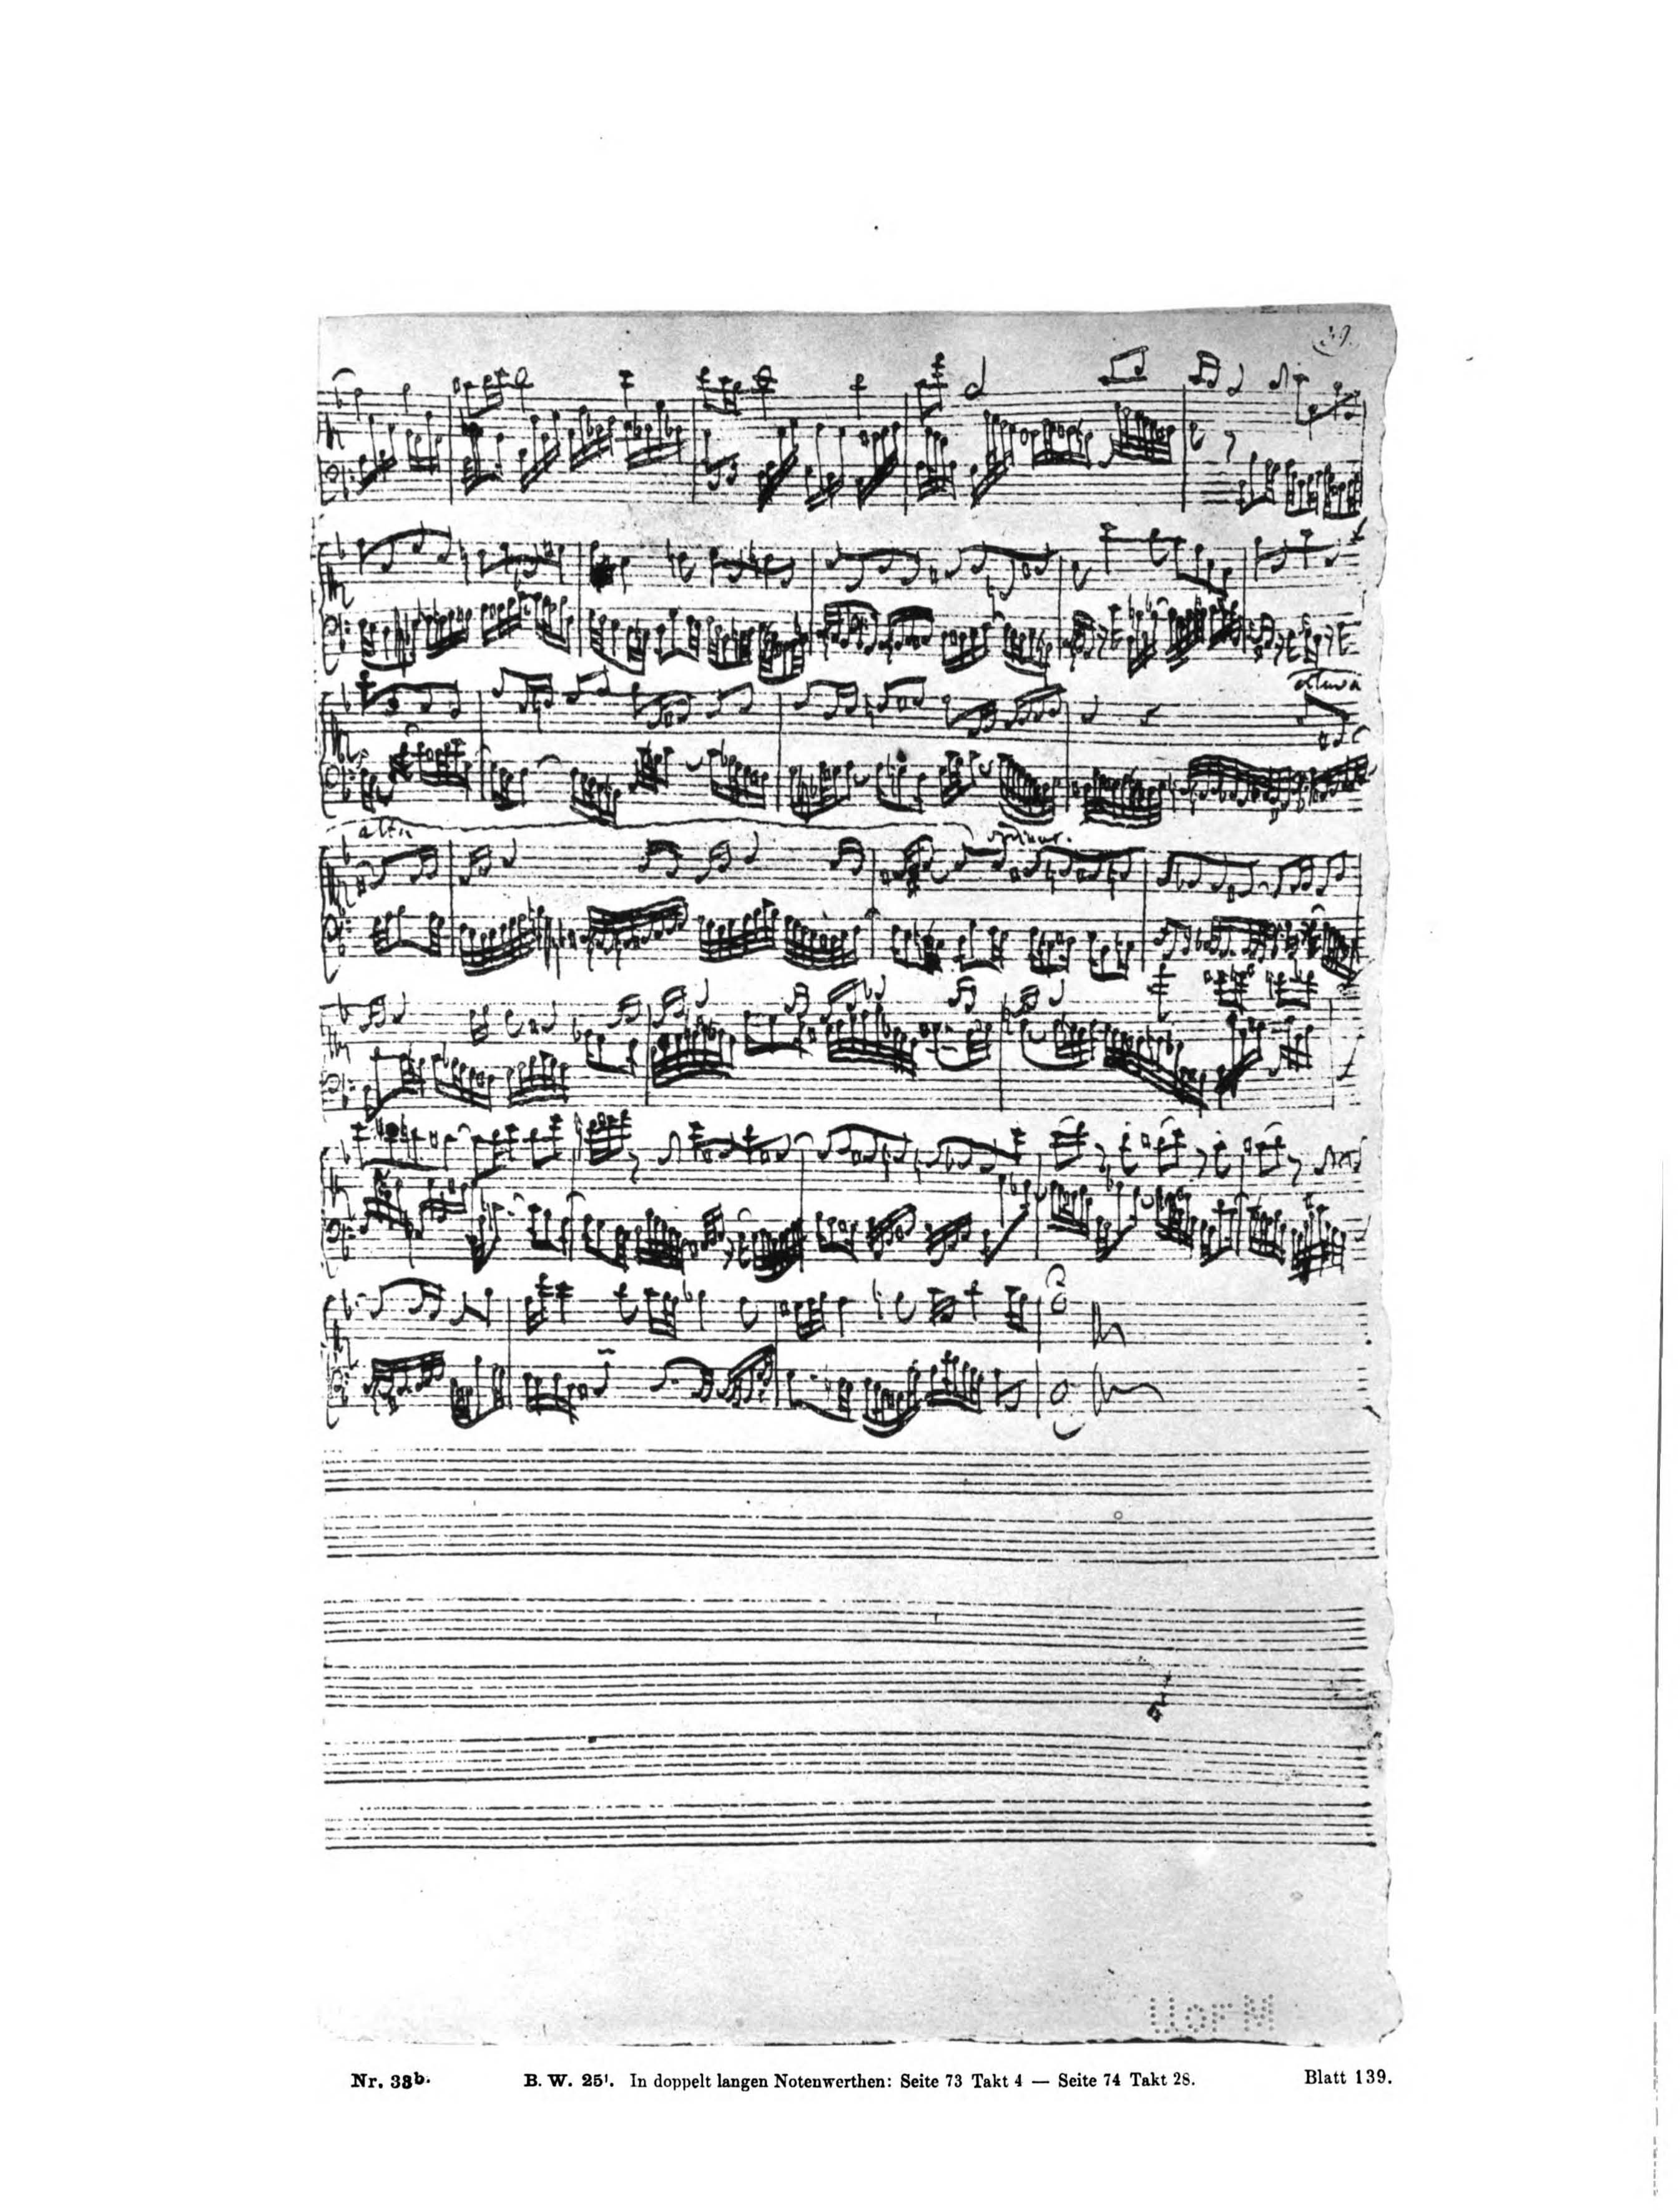 39.
altu
Nr. 33b. B. W. 25¹. In doppelt langen Notenwerthen: Seite 73 Takt 4 — Seite 74 Takt 28. Blatt 139.
U OF M